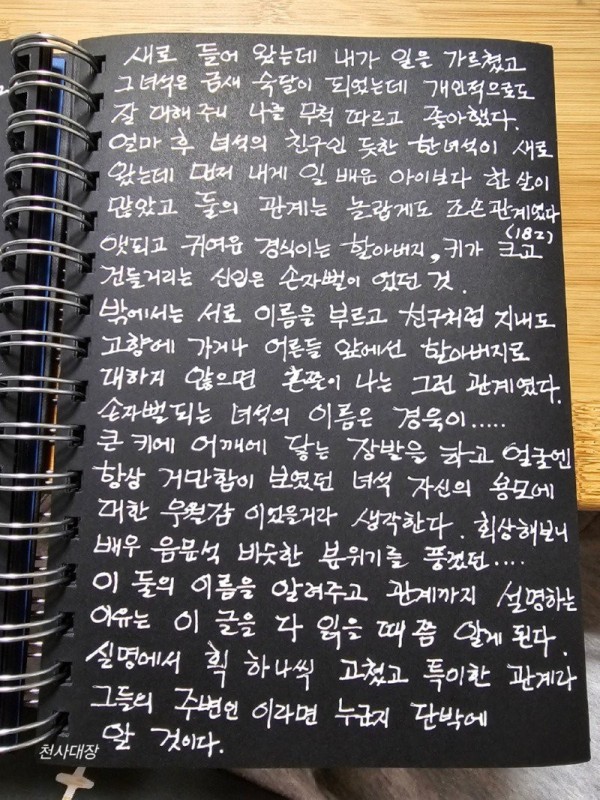 새로 들어 왔는데 내가 일을 가르쳤고
그녀석은 금새 숙달이 되었는데 개인적으로도
잘 대해주니 나를 무척 따르고 좋아했다.
얼마 후 녀석의 친구인 듯한 한녀석이 새로
왔는데 먼저 내게 일 배운 아이보다 한 살이
많았고 둘의 관계는 놀랍게도 조손관계였다
(182)
앳되고 귀여운 경식이는 할아버지, 키가 크고
건들거리는 신입은 손자벌이 었던 것.
밖에서는 서로 이름을 부르고 친구처럼 지내도
고향에 가거나 어른들 앞에선 할아버지로
대하지 않으면 혼쭐이 나는 그런 관계였다.
손자벌되는 녀석의 이름은 경욱이.....
큰 키에 어깨에 닿는 장발을 하고 얼굴엔
항상 거만함이 보였던 녀석 자신의 용모에
대한 우월감 이었을거라 생각한다. 회상해보니
배우 음문석 비슷한 분위기를 풍겼던....
이 둘의 이름을 알려주고 관계까지 설명하는
이유는 이 글을 다 읽을 때 쯤 알게 된다.
실명에서 획 하나씩 고쳤고 특이한 관계라
그들의 주변인 이라면 누군지 단박에
알 것이다.
천사대장